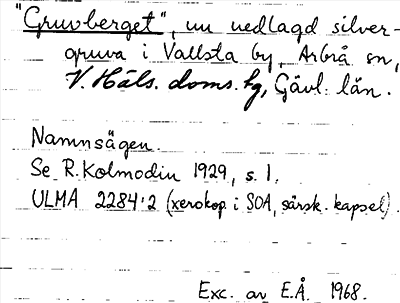 "Gruvberget", nu nedlagd silver-
gruva i Vallsta by, Arbrå sn,
V. Häls. doms. hg, Gävl. län.
Namnsägen.
Se R. Kolmodin 1929, s. 1.
ULMA 2284:2 (xerokop. i SOA, särsk. kapsel).
Exc. av E.Å. 1968.